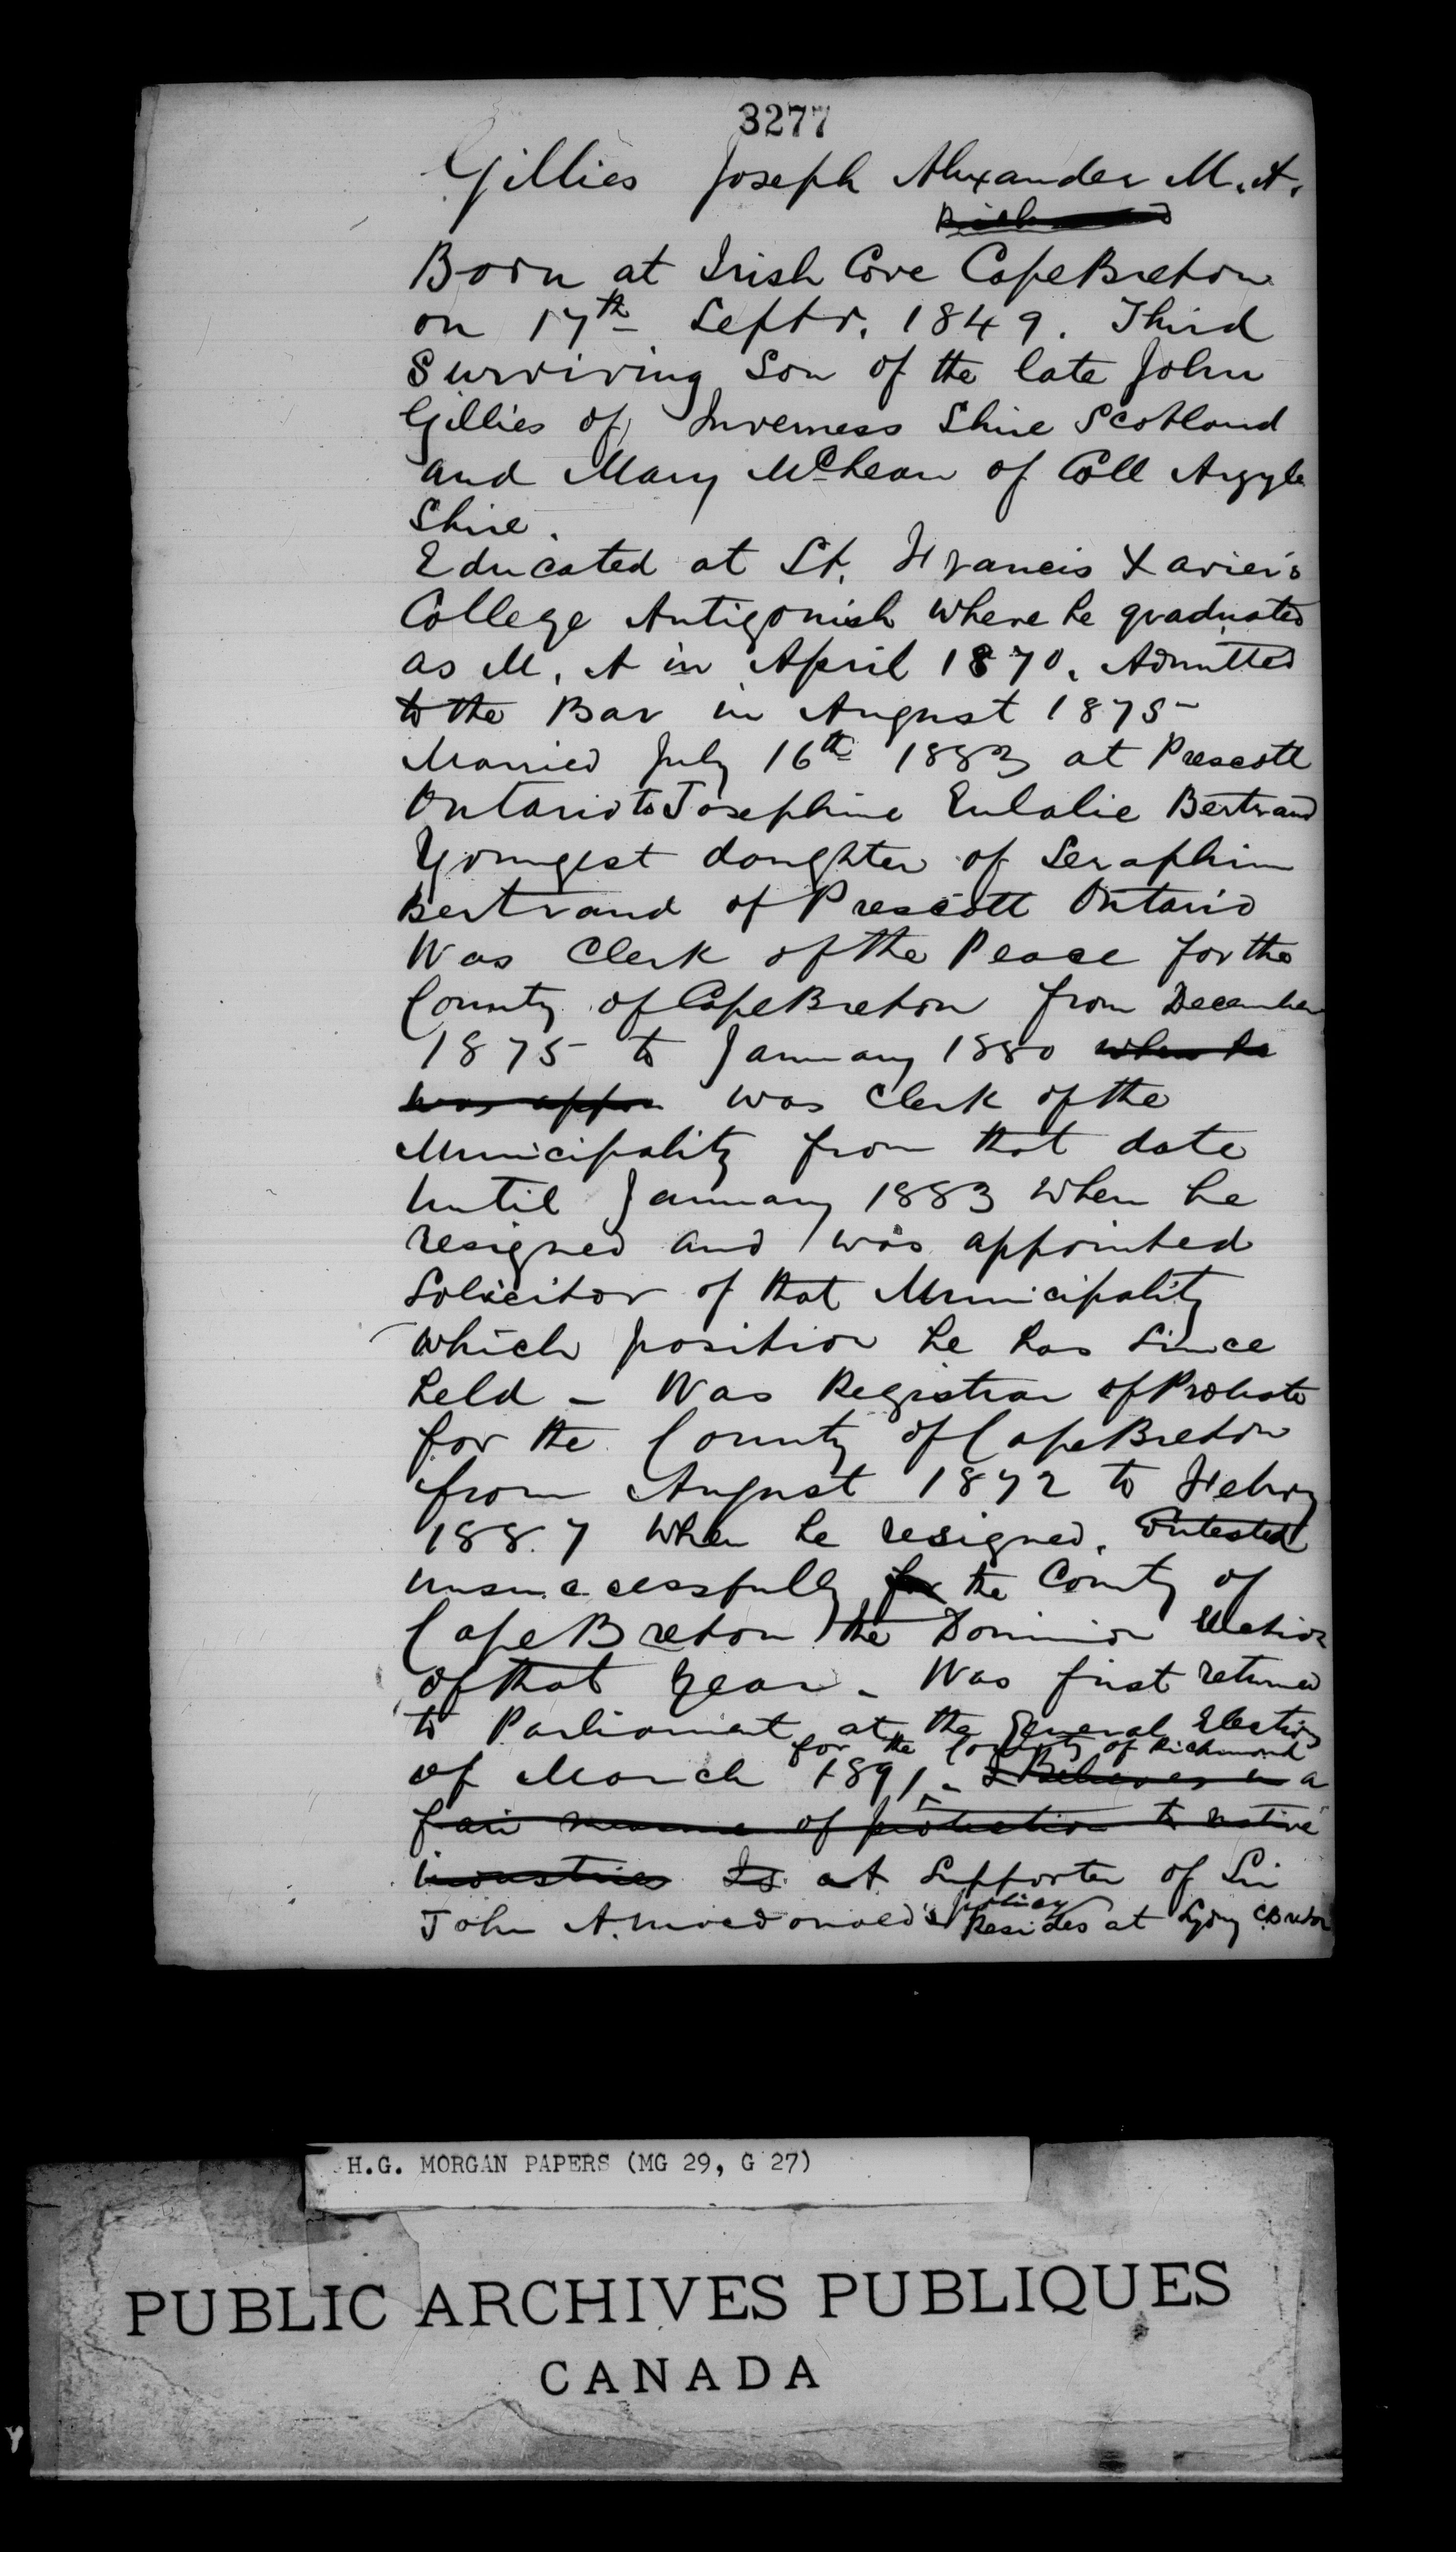 3277
Gillies Joseph Alexander M.A.
Born at Irish Cove Cape Breton
on 17th Septr. 1849. Third
Surviving Son of the late John
Gillies of Inverness Shire Scotland
and Mary McLean of Coll Argyle
Shire.
Educated at St. Francis Xavier's
College Antigonish where he graduated
as M. A in April 1870. Admitted
to the Bar in August 1875-
Married July 16th 1883 at Prescott
Ontario to Josephine Eulalie Bertrand
Youngest daughter of Seraphim
Bertrand of Prescott Ontario
Was Clerk of the Peace for the
County of Cape Breton from December
1875- to January 1880 when he
was appoi was Clerk of the
Municipality from that date
until January 1883 when he
resigned and was appointed
Solicitor of that Municipality
which position he has since
held - Was Registrar of Probate
for the County of Cape Breton
from August 1872 to Febry
1887 when he resigned. Contested
unsuccessfully for the County of
Cape Breton the Dominion Election
of that year. Was first returned
to Parliament at the General Election
for the County of Richmond
of March 1891. Believes in a
fair measure of protection to native
industries Is a supporter of Sir
policy
John A. Macdonald's Resides at Sydny C. Breton
H.G. MORGAN PAPERS (MG 29, G 27)
PUBLIC ARCHIVES PUBLIQUES
CANADA